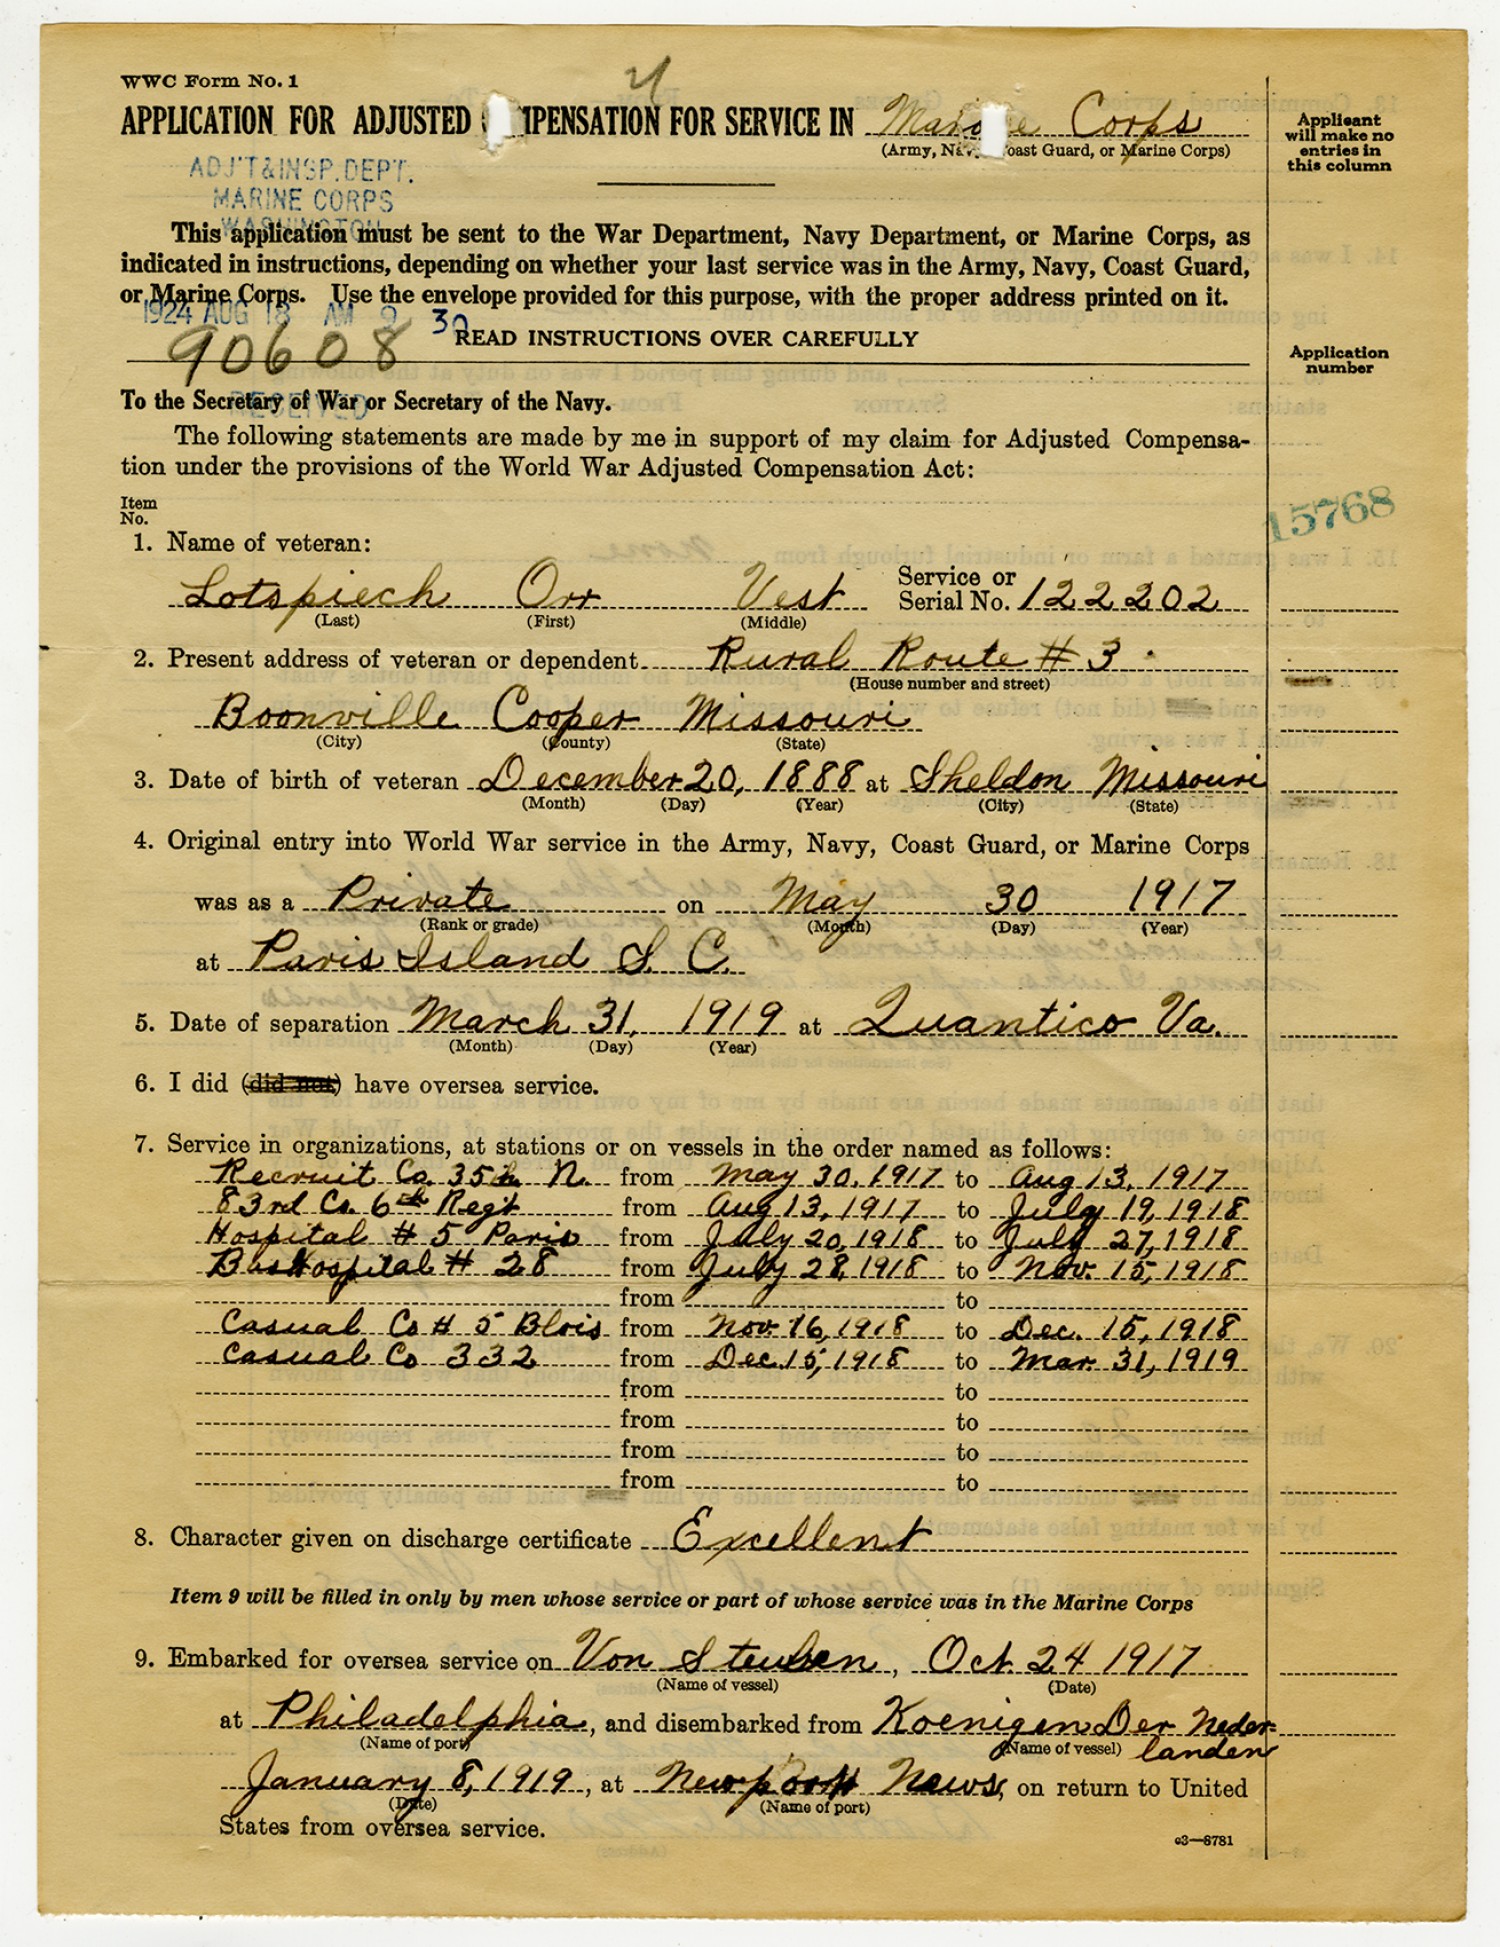 WWC Form No. 1
4
APPLICATION FOR ADJUSTED MPENSATION FOR SERVICE IN Marine Corps
(Army, Navy, Coast Guard, or Marine Corps)
Applicant will make no entries in this column
ADJ'T & INSP. DEPT.
MARINE CORPS
WASHINGTON
This application must be sent to the War Department, Navy Department, or Marine Corps, as
indicated in instructions, depending on whether your last service was in the Army, Navy, Coast Guard,
or Marine Corps. Use the envelope provided for this purpose, with the proper address printed on it.
1924 AUG 18 AM 9 30
90608
READ INSTRUCTIONS OVER CAREFULLY
Application number
RECEIVED
To the Secretary of War or Secretary of the Navy.
The following statements are made by me in support of my claim for Adjusted Compensa-
tion under the provisions of the World War Adjusted Compensation Act:
15768
Item
No.
1. Name of veteran:
Lotspiech Orr Vest Service or Serial No. 122202
(Last) (First) (Middle)
2. Present address of veteran or dependent Rural Route # 3
(House number and street)
Boonville Cooper Missouri
(City) (County) (State)
3. Date of birth of veteran December 20, 1888 at Sheldon Missouri
(Month) (Day) (Year) (City) (State)
4. Original entry into World War service in the Army, Navy, Coast Guard, or Marine Corps
was as a Private on May 30 1917
(Rank or grade) (Month) (Day) (Year)
at Paris Island S. C.
5. Date of separation March 31, 1919 at Quantico Va.
(Month) (Day) (Year)
6. I did (did not) have oversea service.
7. Service in organizations, at stations or on vessels in the order named as follows:
Recruit Co. 35th N. from May 30, 1917 to Aug 13, 1917
83rd Co. 6th Regt from Aug 13, 1917 to July 19, 1918
Hospital # 5 Paris from July 20, 1918 to July 27, 1918
Bas Hospital # 28 from July 28, 1918 to Nov. 15, 1918
from to
Casual Co # 5 Blois from Nov. 16, 1918 to Dec. 15, 1918
Casual Co 332 from Dec. 15, 1918 to Mar. 31, 1919
from to
from to
from to
from to
8. Character given on discharge certificate Excellent
Item 9 will be filled in only by men whose service or part of whose service was in the Marine Corps
9. Embarked for oversea service on Von Steuben, Oct 24 1917
(Name of vessel) (Date)
at Philadelphia, and disembarked from Koenigen Der Neder=
(Name of port) (Name of vessel) landen
January 8, 1919, at Newport News, on return to United
(Date) (Name of port)
States from oversea service.
c3—8781